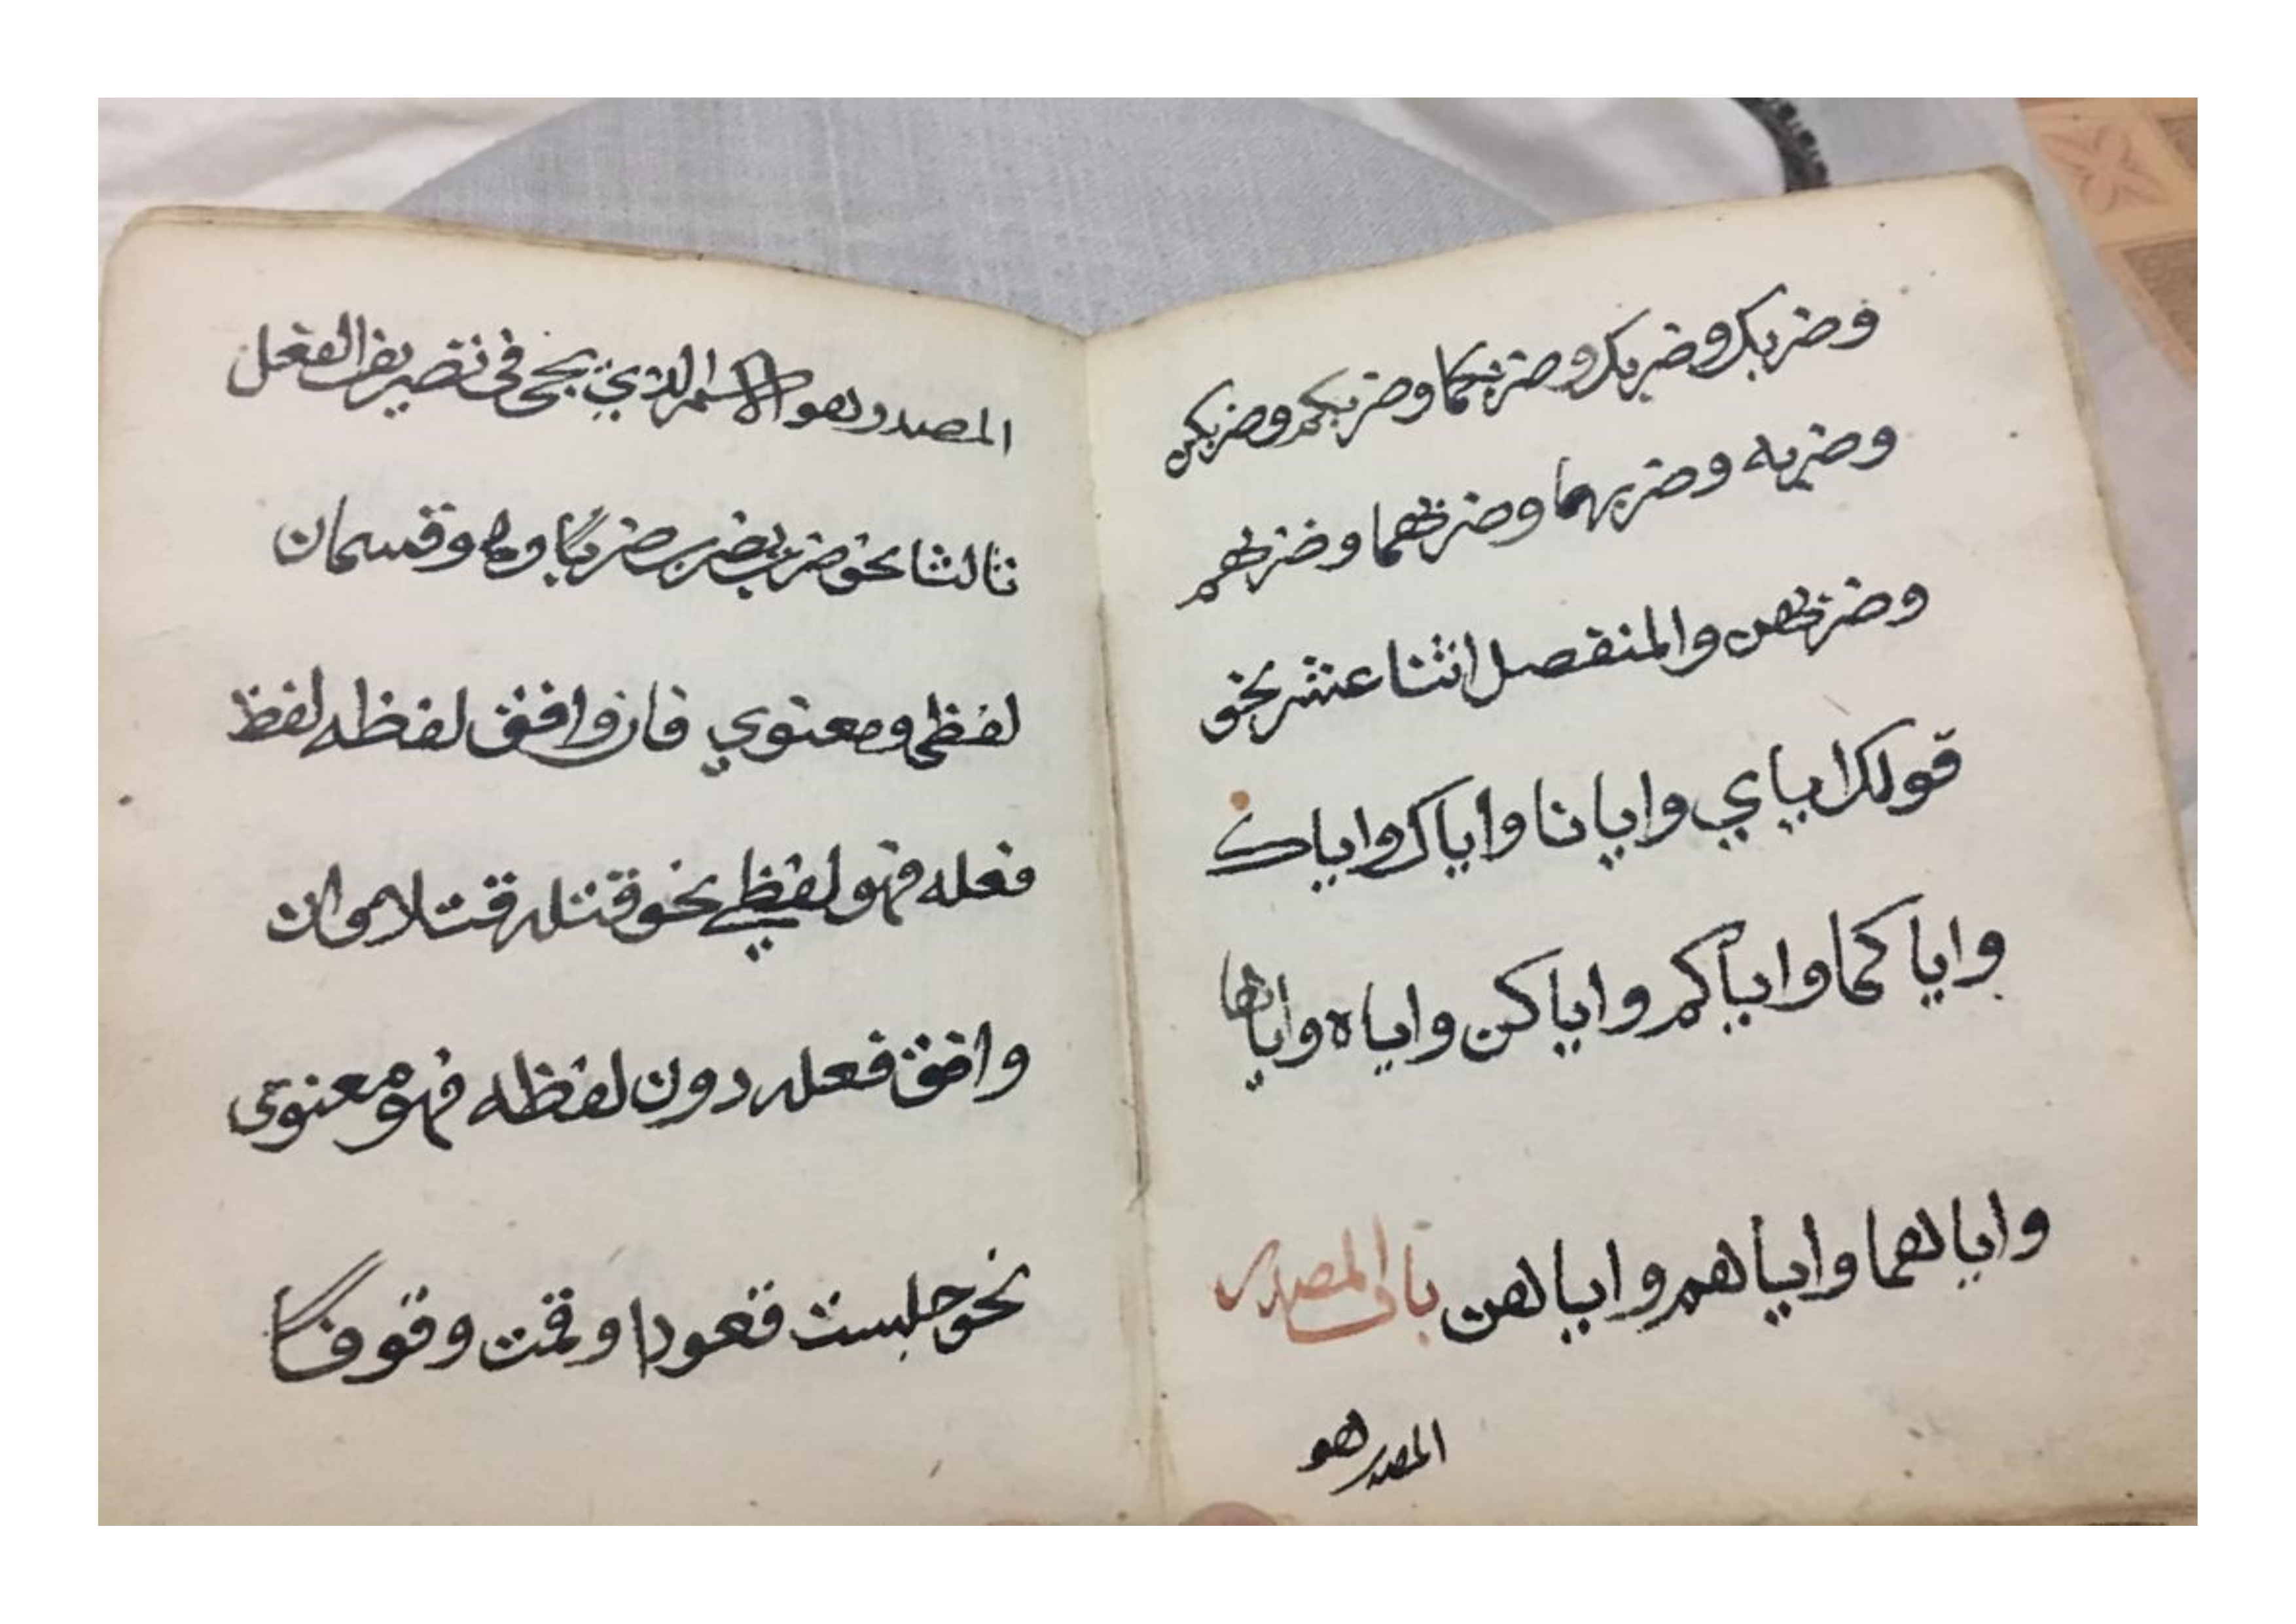 وضربك وضربك وضربكما وضربكم وضربكن
وضربه وضربهما وضربهما وضربهم
وضربهن والمنفصل اثنا عشر نحو
قولك اياي وايانا واياك واياك
واياكما واياكم واياكن واياه واياها
واياهما واياهم واياهن باب المصدر
المصدر هو
المصدر وهو الاسم الذي يجي في تصريف الفعل
ثالثا نحو ضرب يضرب ضربا وهو قسمان
لفظي ومعنوي فان وافق لفظه لفظ
فعله فهو لفظي نحو قتلته قتلا وان
وافق فعله دون لفظه فهو معنوي
نحو جلست قعودا وقمت وقوفا